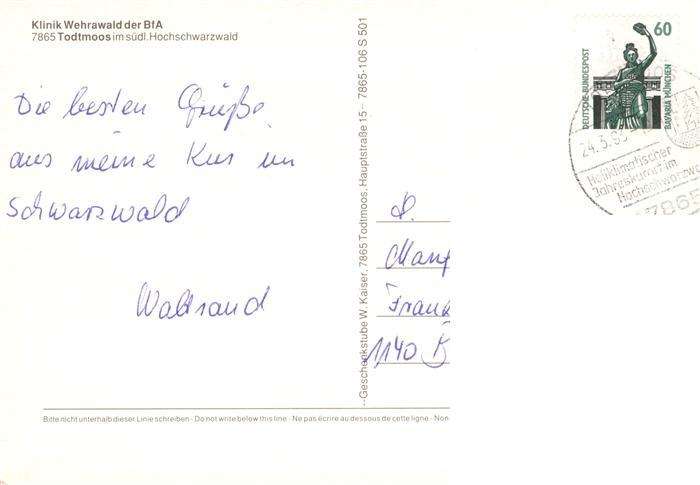 Klinik Wehrawald der BfA
7865 Todtmoos im südl. Hochschwarzwald
Die besten Grüße
aus meine Kur im
Schwarzwald
Waltraud
Geschenkstube W. Kaiser, 7865 Todtmoos, Hauptstraße 15 – 7865-106 S 501
DEUTSCHE BUNDESPOST
60
BAVARIA MÜNCHEN
24.3.
Heilklimatischer
Jahreskurort im
Hochschwarzwa
7865
1140 B
Bitte nicht unterhalb dieser Linie schreiben - Do not write below this line - Ne pas écrire au dessous de cette ligne - Non